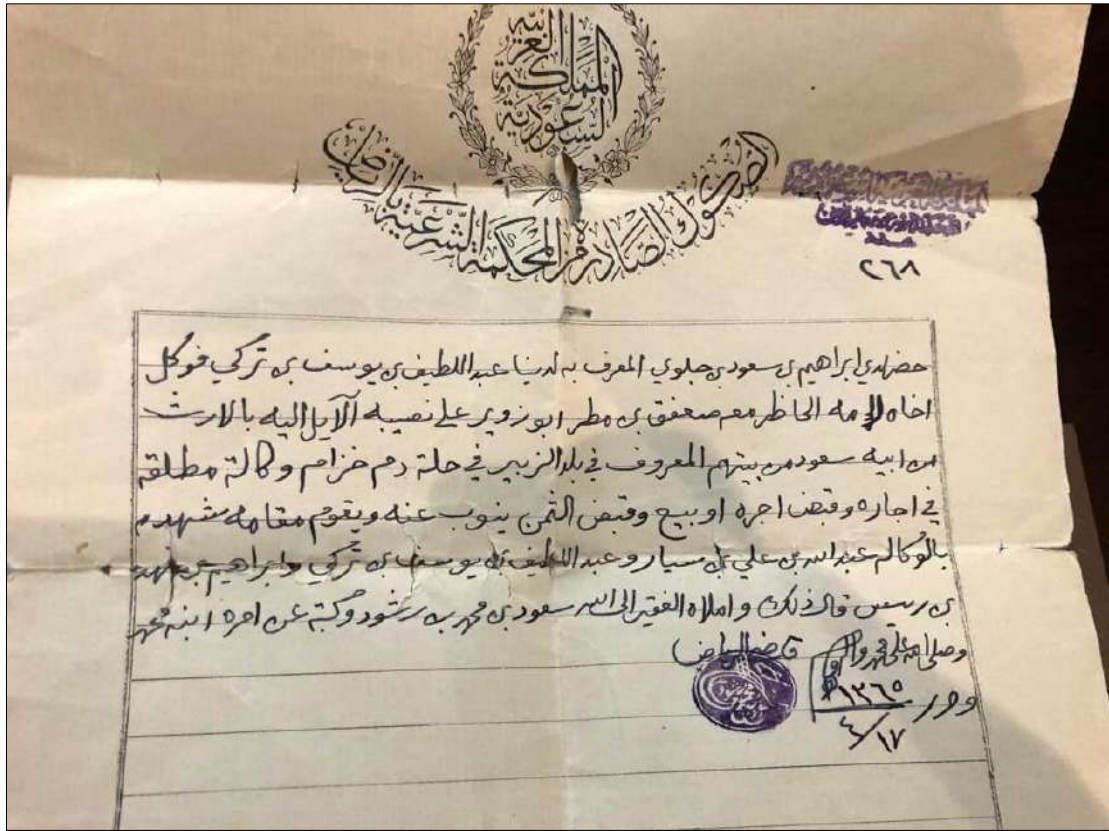 المملكة العربية السعودية
الصكوك الصادرة من المحكمة الشرعية بالرياض
عدد
٢٦٨
حضر لدي ابراهيم بن سعود بن جلوي المعرف به لدينا عبداللطيف بن يوسف بن تركي فوكل
اخاه لامه الحاظر معه صعفق بن مطر ابو زوير على نصيبه الآيل اليه بالارث
من ابيه سعود من بيتهم المعروف في بلد الزبير في حلة دم خزام وكالة مطلقة
في اجاره وقبض اجره او بيع وقبض الثمن ينوب عنه ويقوم مقامه شهد
بالوكاله عبدالله بن علي بن سيار وعبداللطيف بن يوسف بن تركي وابراهيم بن فهد
بن ريس قال ذلك واملاه الفقير الى الله سعود بن محمد بن رشود وكتبه عن امره ابنه محمد
وصلى الله على محمد واله
قاضي الرياض
وحرر
١٣٦٥
٤/١٧